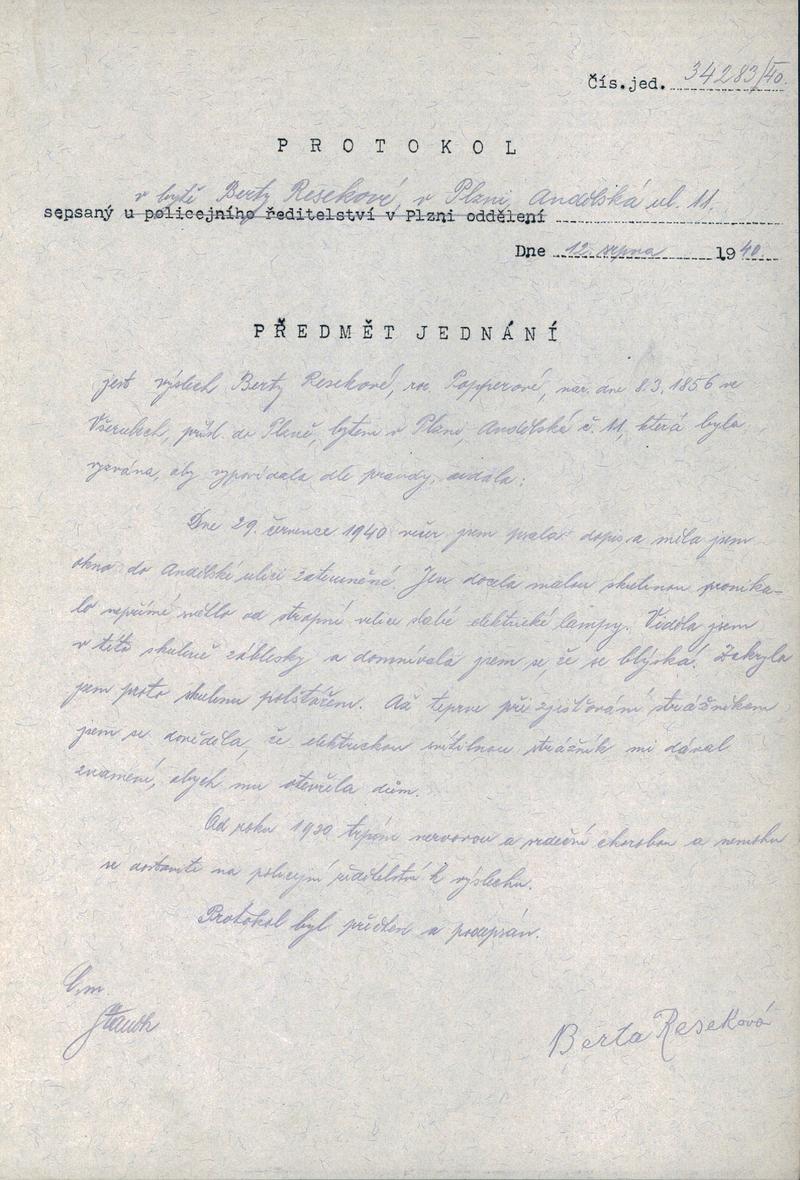 Čís.jed. 34283/40.
PROTOKOL
v bytě Berty Resekové, v Plzni, Andělská ul. 11.
sepsaný u policejního ředitelství v Plzni oddělení
Dne 12. srpna 1940.
PŘEDMĚT JEDNÁNÍ
jest výslech Berty Resekové, roz. Popperové, nar. dne 8.3.1856 ve
Všerubech, přísl. do Plzně, bytem v Plzni, Andělská č. 11, která byla
vyzvána, aby vypovídala dle pravdy, udala:
Dne 29. července 1940 večer jsem psala dopis a měla jsem
okno do Andělské ulici zatemněné. Jen docela malou skulinou pronika-
lo nepřímé světlo od stropní velice slabé elektrické lampy. Viděla jsem
v této skulině záblesky a domnívala jsem se, že se blýská. Zakryla
jsem proto skulinu polštářem. Až teprve při zjišťování strážníkem
jsem se dověděla, že elektrickou svítilnou strážník mi dával
znamení, abych mu otevřela dům.
Od roku 1920 trpím nervovou a srdeční chorobou a nemohu
se dostaviti na policejní ředitelství k výslechu.
Protokol byl přečten a podepsán.
Berta Reseková